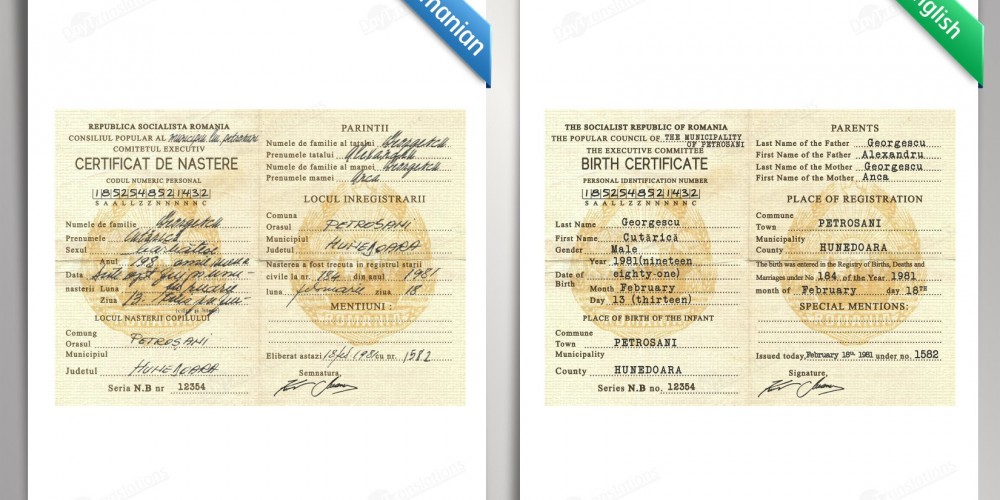 manian
REPUBLICA SOCIALISTA ROMANIA
CONSILIUL POPULAR AL
COMITETUL EXECUTIV
CERTIFICAT DE NASTERE
CODUL NUMERIC PERSONAL
1852548521432
S A A L L Z Z N N N N N C
Numele de familie Georgescu
Prenumele Cutărica
Sexul
Anul
Data
nasterii Luna
Ziua 13.
LOCUL NASTERII COPILULUI
Comung
Orasul PETROȘANI
Municipiul
Judetul HUNEDOARA
Seria N.B nr 12354
PARINTII
Numele de familie al tatalui Georgescu
Prenumele tatalui Alexandru
Numele de familie al mamei Georgescu
Prenumele mamei Anca
LOCUL INREGISTRARII
Comuna
Orasul PETROSANI
Municipiul
Judetul HUNEDOARA
Nasterea a fost trecuta in registrul starii
civile la nr. 184 din anul 1981
luna februarie ziua 18.
MENTIUNI :
Eliberat astazi cu nr. 1582
Semnatura,
nglish
THE SOCIALIST REPUBLIC OF ROMANIA
THE POPULAR COUNCIL OF THE MUNICIPALITY
OF PETROSANI
THE EXECUTIVE COMMITTEE
BIRTH CERTIFICATE
PERSONAL IDENTIFICATION NUMBER
1852548521432
S A A L L Z Z N N N N N C
Last Name Georgescu
First Name Cutărică
Gender Male
Year 1981(nineteen
eighty-one)
Date of
Birth
Month February
Day 13 (thirteen)
PLACE OF BIRTH OF THE INFANT
Commune
Town PETROSANI
Municipality
County HUNEDOARA
Series N.B no. 12354
PARENTS
Last Name of the Father Georgescu
First Name of the Father Alexandru
Last Name of the Mother Georgescu
First Name of the Mother Anca
PLACE OF REGISTRATION
Commune
Town PETROSANI
Municipality
County HUNEDOARA
The birth was entered in the Registry of Births, Deaths and
Marriages under No 184 of the Year 1981
month of February day 18TH
SPECIAL MENTIONS:
Issued today, February 18th 1981 under no. 1582
Signature,